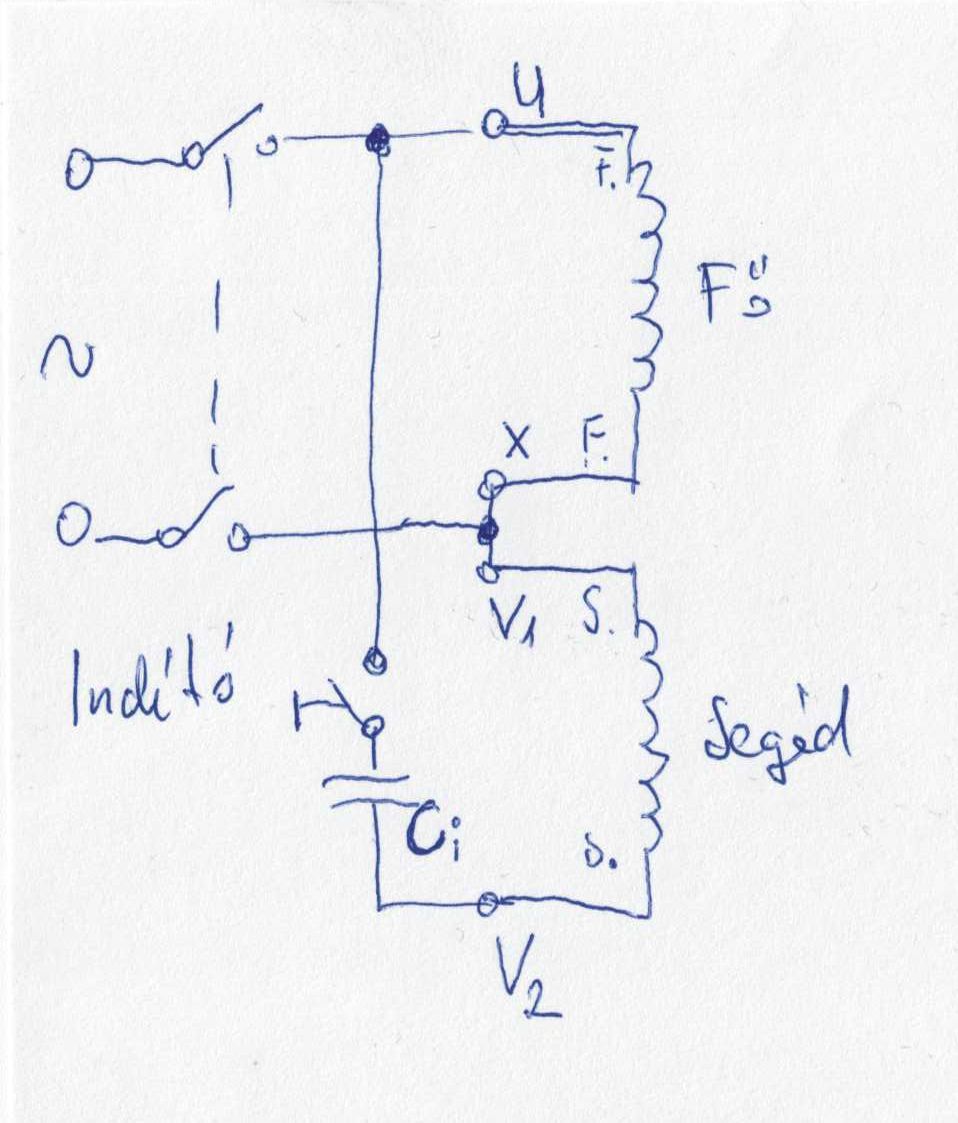 U
F.
Fő
~
X F.
V1 S.
Indító
Segéd
Ci
S.
V2